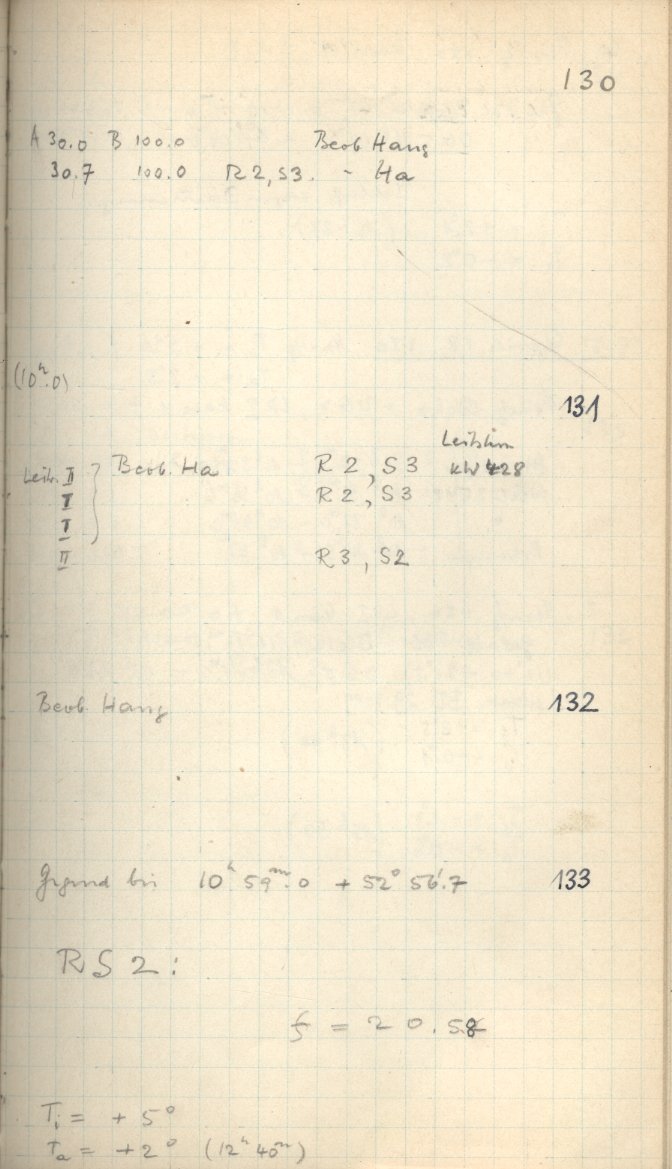 130
A 30.0 B 100.0 Beob Hang
30.7 100.0 R2, S3. - Ha
(10ʰ.0)
131
Leitstern
Leitr. II } Beob. Ha R 2, S3 KW 428
I R 2, S3
I
II R3, S2
Beob. Hang 132
Gegend bei 10ʰ 59ᵐ.0 + 52° 56'.7 133
RS 2:
= 20.58
Tᵢ = + 5°
Tₐ = +2° (12ʰ 40ᵐ)